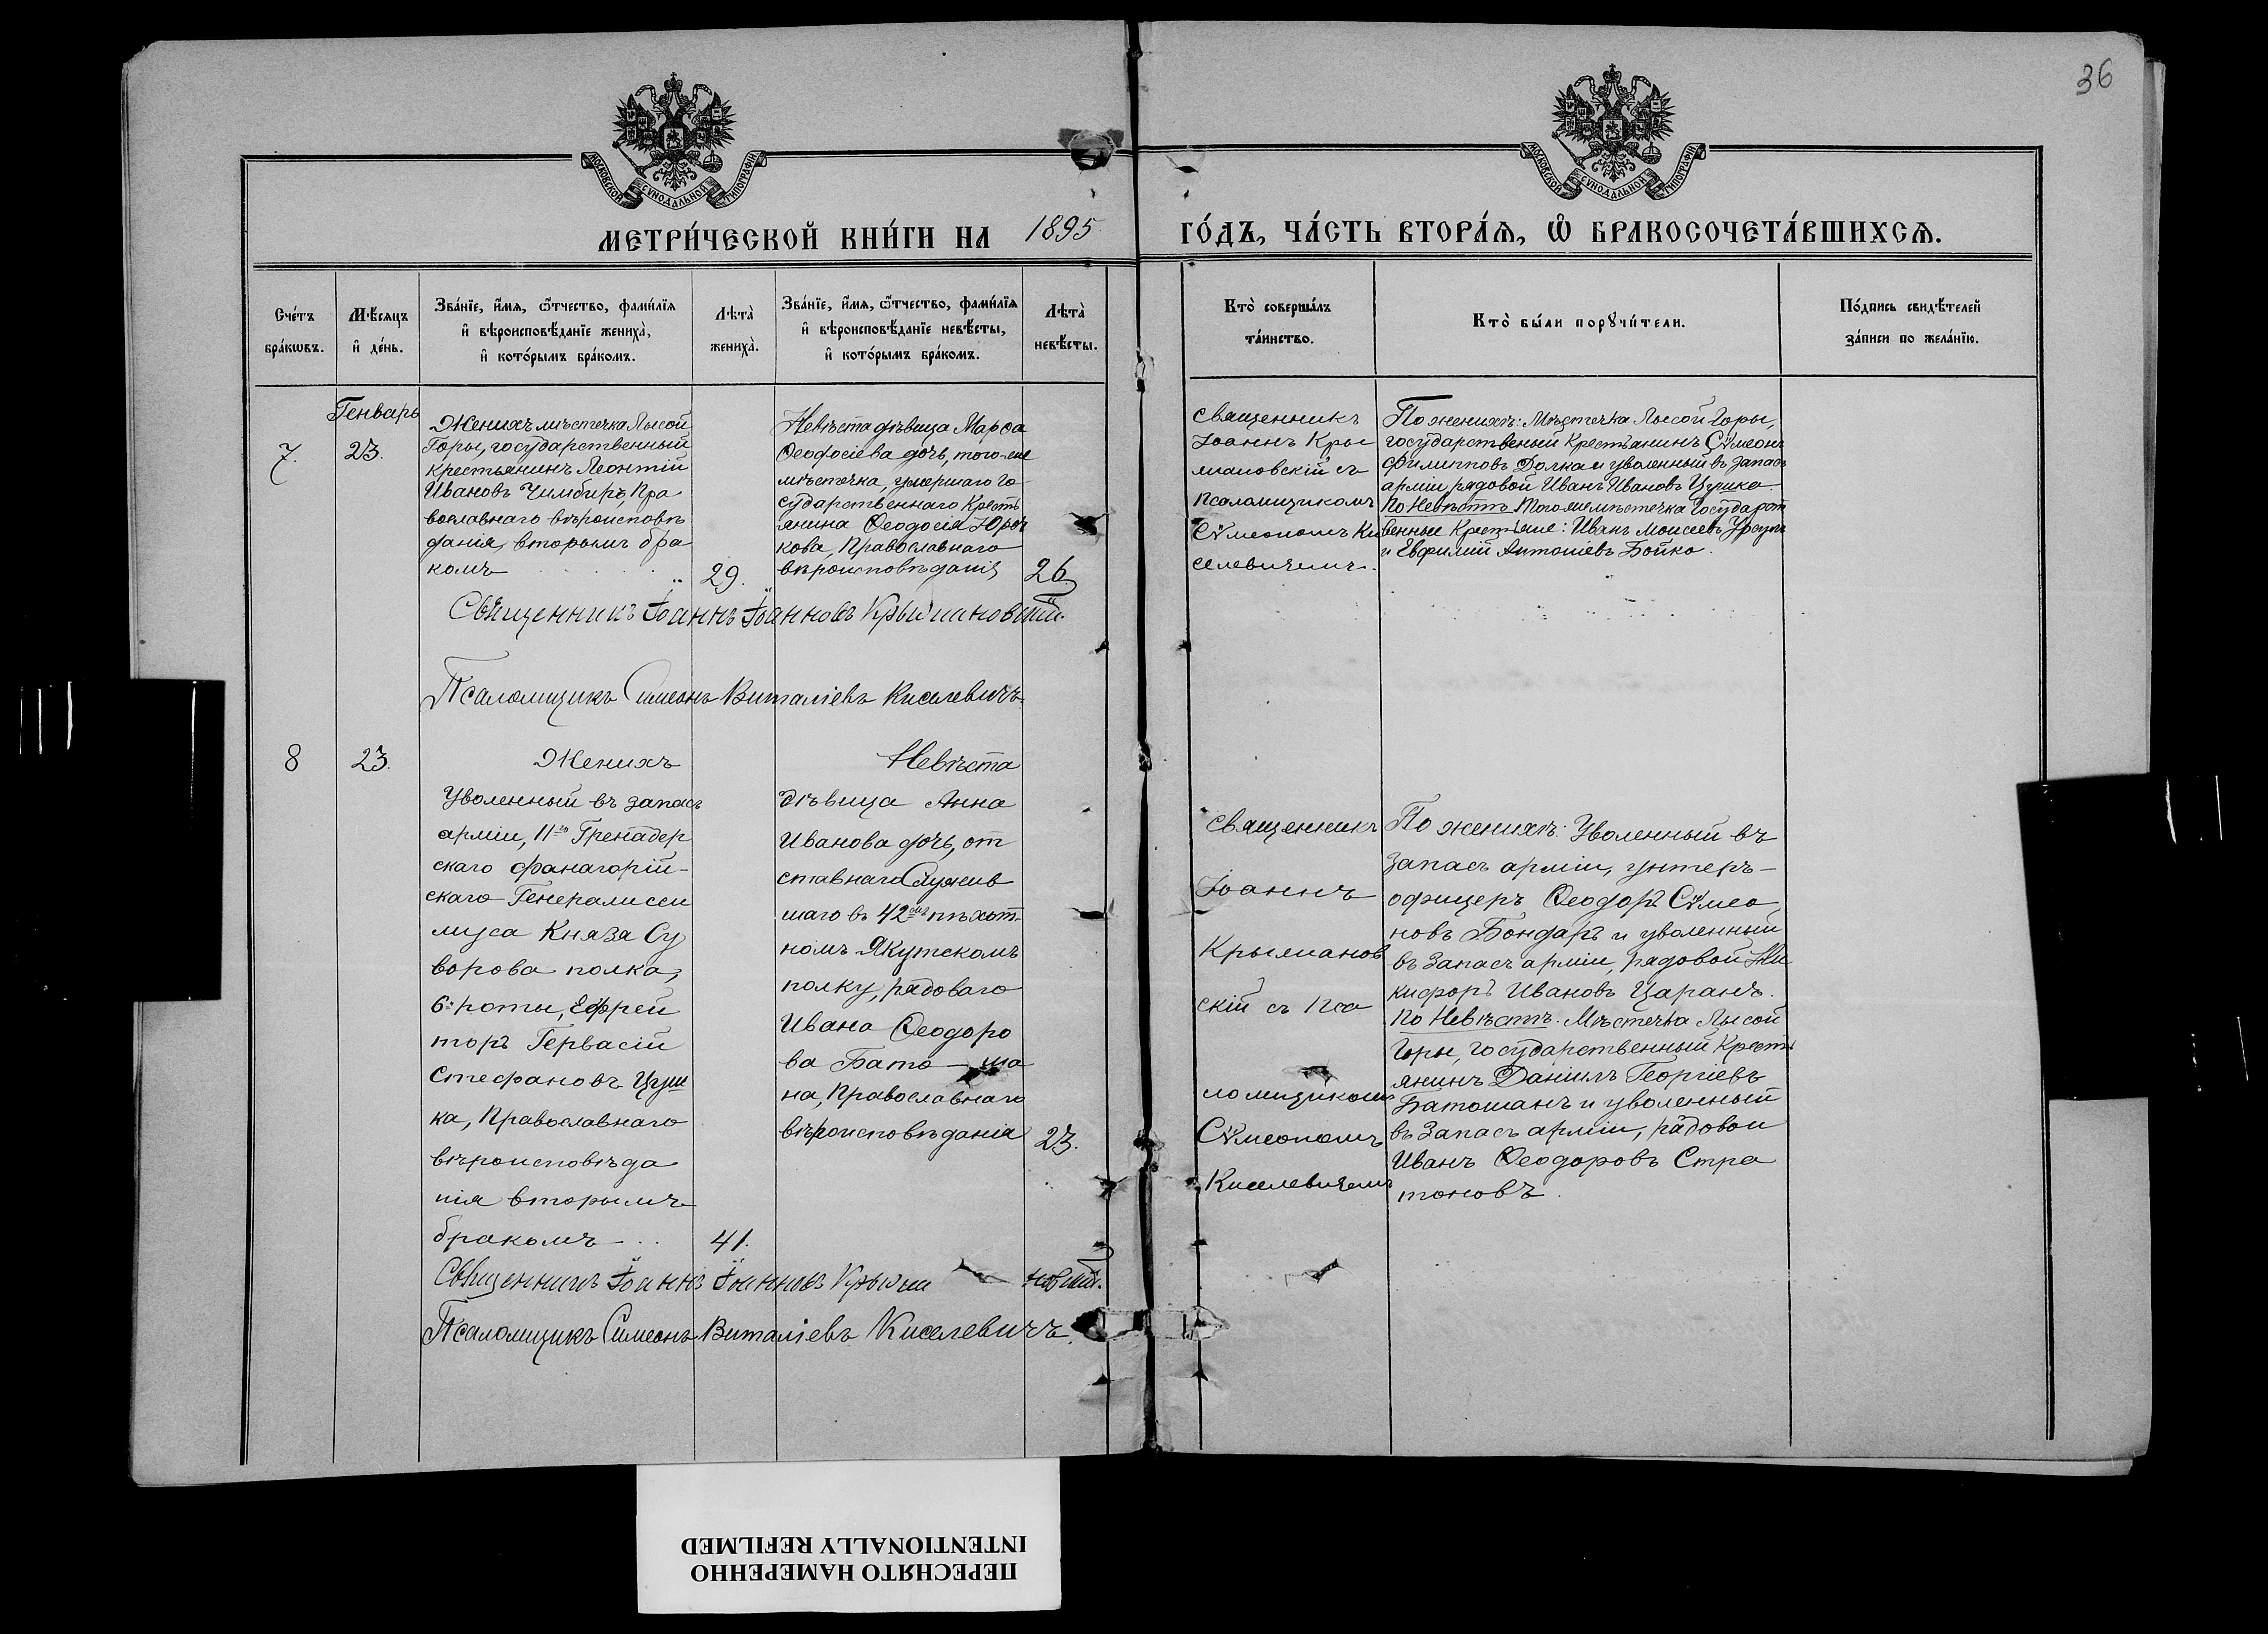 36
МОСКОВСКОЙ СѴНОДАЛЬНОЙ ТИПОГРАФІИ
МОСКОВСКОЙ СѴНОДАЛЬНОЙ ТИПОГРАФІИ
МЕТРИ́ЧЕСКОЙ КНИ́ГИ НА 1895 ГО́ДЪ, ЧА́СТЬ ВТОРА́Я, Ѡ҆ БРАКОСОЧЕТА́ВШИХСѦ.
Сче́тъ
бра́кѡвъ.
Мѣ́сяцъ
и҆ де́нь.
Зва́нїе, и҆́мя, ѻ҆́тчество, фами́лїя
и҆ вѣроисповѣ́данїе жениха̀,
и҆ кото́рымъ бра́комъ.
Лѣта̀
жениха̀.
Зва́нїе, и҆́мя, ѻ҆́тчество, фами́лїя
и҆ вѣроисповѣ́данїе невѣ́сты,
и҆ кото́рымъ бра́комъ.
Лѣта̀
невѣ́сты.
Кто̀ соверша́лъ
та́инство.
Кто̀ бы́ли порꙋчи́тели.
По́дпись свидѣ́телей
за́писи по жела́нїю.
7.
Генварь
23.
Женихъ мѣстечка Лысой
Горы, государственный
крестьянинъ Леонтій
Ивановъ Чимбиръ, Пра
вославнаго вѣроисповѣ
данія, вторымъ бра
комъ
29.
Невѣста дѣвица Марѳа
Ѳеодосіева дочь, того-же
мѣстечка, умершаго Го
сударственнаго Кресть
янина Ѳеодосія
кова, Православнаго
вѣроисповѣданія
26.
Священникъ
Іоаннъ Кры
жановскій съ
псаломщикомъ
Сѵмеономъ Ки
селевичемъ.
По женихѣ: Мѣстечка Лысой Горы,
государственый Крестьянинъ Сѵмеонъ
Филипповъ Долка и уволенный въ запасъ
арміи, рядовой Иванъ Ивановъ Цушко
По Невѣстѣ Того же мѣстечка Государст
венные Крестьяне: Иванъ Моисеевъ
и Евфимій Антоніевъ Бойко.
Священникъ Іоаннъ Іоанновъ Крыжановскій.
Псаломщикъ Симеонъ Виталіевъ Киселевичъ
8
23.
Женихъ
Уволенный въ запасъ
арміи, 11го Гренадер
скаго Фанагорій-
скаго Генералисси
муса Князя Су
ворова полка,
6й роты, Ефрей
торъ Гервасій
Стефановъ Цуш
ка, Православнаго
вѣроисповѣда
нія вторымъ
бракомъ
41.
Невѣста
дѣвица Анна
Иванова дочь, от
ставнаго Служив
шаго въ 42омъ пѣхот
номъ Якутскомъ
полку, рядоваго
Ивана Ѳеодоро
ва Бато-ша
на, Православнаго
вѣроисповѣданія
23.
Священникъ
Іоаннъ
Крыжанов
скій съ Пса
ломщикомъ
Сѵмеономъ
Киселевичемъ
По женихѣ: Уволенный въ
запасъ арміи, унтеръ-
офицеръ Ѳеодоръ Сѵмео
новъ Бондарь и уволенный
въ Запасъ арміи, рядовой Ни
кифоръ Ивановъ Царанъ.
По Невѣстѣ. Мѣстечка Лысой
Горы, государственный Кресть
янинъ Даніилъ Георгіевъ
Батошанъ и уволенный
въ Запасъ арміи, рядовой
Иванъ Ѳеодоровъ Стра
тоновъ.
Священникъ Іоаннъ Іоанновъ Крыжановскій.
Псаломщикъ Симеонъ Виталіевъ Киселевичъ.
ПЕРЕСНЯТО НАМЕРЕННО
INTENTIONALLY REFILMED